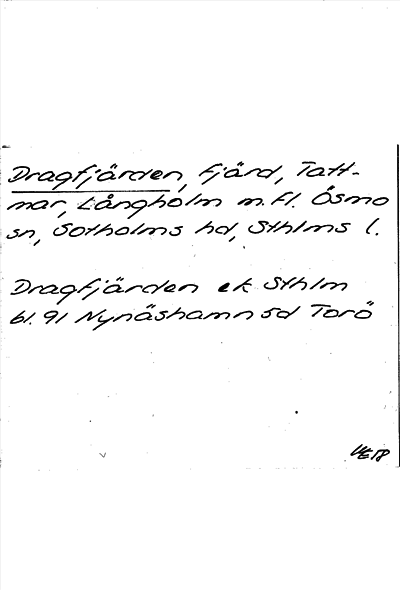 Dragfjärden, fjärd, Tatt-
mar, Långholm m.fl. Ösmo
sn, Sotholms hd, Sthlms l.
Dragfjärden ek Sthlm
bl. 91 Nynäshamn sd Torö